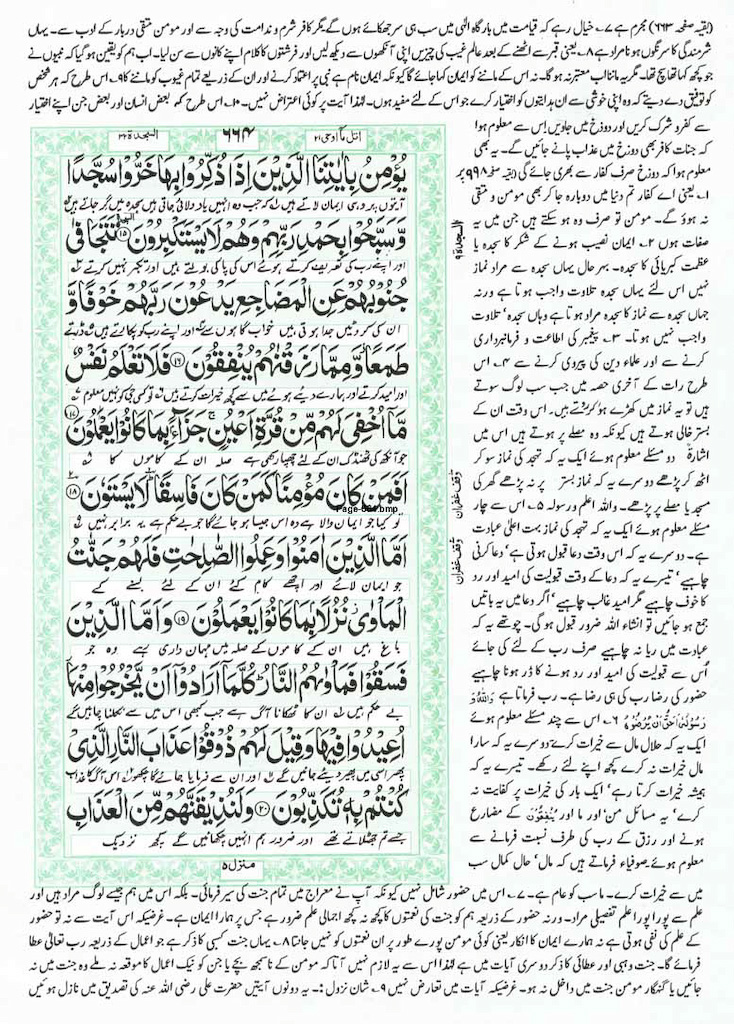 (بقیہ صفحہ ۶۶۳) مجرم ہے ۷۔ خیال رہے کہ قیامت میں بارگاہ الٰہی میں سب ہی سر جھکائے ہوں گے مگر کافر شرم و ندامت کی وجہ سے اور مومن متقی دربار کے ادب سے۔ یہاں
شرمندگی کا سرنگوں ہونا مراد ہے ۸۔ یعنی قبر سے اٹھنے کے بعد عالم غیب کی چیزیں اپنی آنکھوں سے دیکھ لیں اور فرشتوں کا کلام اپنے کانوں سے سن لیا۔ اب ہم کو یقین ہو گیا کہ نبیوں نے
جو کچھ کہا تھا سچ تھا۔ مگر یہ ماننا اب معتبر نہ ہو گا۔ نہ اس کے ماننے کو ایمان کہا جائے گا کیونکہ ایمان نام ہے نبی پر اعتماد کرنے اور ان کے ذریعے تمام غیوب کو ماننے کا ۹۔ اس طرح کہ ہر شخص
کو توفیق دے دیتے کہ وہ اپنی خوشی سے ان ہدایتوں کو اختیار کرے جو اس کے لئے مفید ہوں۔ لہٰذا آیت پر کوئی اعتراض نہیں۔ ۱۰۔ اس طرح کہ بعض انسان اور بعض جن اپنے اختیار
سے کفر و شرک کریں اور دوزخ میں جاویں اس سے معلوم ہوا
کہ جنات کافر بھی دوزخ میں عذاب پانے جائیں گے۔ یہ بھی
معلوم ہوا کہ دوزخ صرف کفار سے بھری جائے گی (بقیہ صفحہ ۹۹۸ پر
۱۔ یعنی اے کفار تم دنیا میں دوبارہ جا کر بھی مومن و متقی
نہ ہوؤ گے۔ مومن تو صرف وہ ہو سکتے ہیں جن میں یہ
صفات ہوں ۲۔ ایمان نصیب ہونے کے شکر کا سجدہ یا
عظمت کبریائی کا سجدہ۔ بہرحال یہاں سجدہ سے مراد نماز
نہیں اس لئے یہاں سجدہ تلاوت واجب ہوتا ہے ورنہ
جہاں سجدہ سے نماز کا سجدہ مراد ہوتا ہے وہاں سجدہ تلاوت
واجب نہیں ہوتا۔ ۳۔ پیغمبر کی اطاعت و فرمانبرداری
کرنے سے اور علماء دین کی پیروی کرنے سے ۴۔ اس
طرح رات کے آخری حصہ میں جب سب لوگ سوتے
ہیں تو یہ نماز میں کھڑے ہو کر روتے ہیں۔ اس وقت ان کے
بستر خالی ہوتے ہیں کیونکہ وہ مصلے پر ہوتے ہیں اس میں
اشارۃً دو مسئلے معلوم ہوئے ایک یہ کہ تہجد کی نماز سو کر
اٹھ کر پڑھے دوسرے یہ کہ نماز بستر پر نہ پڑھے گھر کی
مسجد یا مصلے پر پڑھے۔ واللہ اعلم ورسولہ ۵۔ اس سے چار
مسئلے معلوم ہوئے ایک یہ کہ تہجد کی نماز بہت اعلیٰ عبادت
ہے۔ دوسرے یہ کہ اس وقت دعا قبول ہوتی ہے، دعا کرنی
چاہیے، تیسرے یہ کہ دعا کے وقت قبولیت کی امید اور رد
کا خوف چاہیے مگر امید غالب چاہیے، اگر دعا میں یہ باتیں
جمع ہو جائیں تو انشاء اللہ ضرور قبول ہو گی۔ چوتھے یہ کہ
عبادت میں ریا نہ چاہیے صرف رب کے لئے کی جائے
اُس سے قبولیت کی امید اور رد ہونے کا ڈر ہونا چاہیے
حضور کی رضا رب کی ہی رضا ہے۔ رب فرماتا ہے وَاللّٰهُ وَ
رَسُوْلُهٗۤ اَحَقُّ اَنْ يُّرْضُوْهُ ۶۔ اس سے چند مسئلے معلوم ہوئے
ایک یہ کہ حلال مال سے خیرات کرے دوسرے یہ کہ سارا
مال خیرات نہ کرے کچھ اپنے لئے رکھے۔ تیسرے یہ کہ
ہمیشہ خیرات کرتا رہے، ایک بار کی خیرات پر کفایت نہ
کرے، یہ مسائل من، اور ما اور يُنْفِقُوْنَ کے مضارع
ہونے اور رزق کے رب کی طرف نسبت فرمانے سے
معلوم ہوئے۔ صوفیاء فرماتے ہیں کہ مال، حال کمال سب
السجدۃ ۹
وقف غفران
وقف غفران
السجدة ۳۲
۶۶۴
اتل ما اوحی ۲۱
يُؤْمِنُ بِاٰيٰتِنَا الَّذِيْنَ اِذَا ذُكِّرُوْا بِهَا خَرُّوْا سُجَّدًا
آیتوں پر وہی ایمان لاتے ہیں کہ جب وہ انہیں یاد دلائی جاتی ہیں سجدہ میں گر جاتے ہیں
وَّسَبَّحُوْا بِحَمْدِ رَبِّهِمْ وَهُمْ لَا يَسْتَكْبِرُوْنَ ۝۱۵ تَتَجَافٰى
اور اپنے رب کی تعریف کرتے ہوئے اس کی پاکی بولتے ہیں اور تکبر نہیں کرتے
جُنُوْبُهُمْ عَنِ الْمَضَاجِعِ يَدْعُوْنَ رَبَّهُمْ خَوْفًا وَّ
ان کی کروٹیں جدا ہوتی ہیں خواب گاہوں سے اور اپنے رب کو پکارتے ہیں ڈرتے
طَمَعًا وَّمِمَّا رَزَقْنٰهُمْ يُنْفِقُوْنَ ۝۱۶ فَلَا تَعْلَمُ نَفْسٌ
اور امید کرتے اور ہمارے دیئے ہوئے میں سے کچھ خیرات کرتے ہیں تو کسی جی کو نہیں معلوم
مَّاۤ اُخْفِيَ لَهُمْ مِّنْ قُرَّةِ اَعْيُنٍ ۚ جَزَآءًۢ بِمَا كَانُوْا يَعْمَلُوْنَ ۝۱۷
جو آنکھ کی ٹھنڈک ان کے لئے چھپا رکھی ہے صلہ ان کے کاموں کا
اَفَمَنْ كَانَ مُؤْمِنًا كَمَنْ كَانَ فَاسِقًا ؕ لَا يَسْتَوٗنَ ۝۱۸
تو کیا جو ایمان والا ہے وہ اس جیسا ہو جائے گا جو بے حکم ہے یہ برابر نہیں
Page-664.bmp
اَمَّا الَّذِيْنَ اٰمَنُوْا وَعَمِلُوا الصّٰلِحٰتِ فَلَهُمْ جَنّٰتُ
جو ایمان لائے اور اچھے کام کئے ان کے لئے بسنے کے
الْمَاْوٰى ؗ نُزُلًۢا بِمَا كَانُوْا يَعْمَلُوْنَ ۝۱۹ وَاَمَّا الَّذِيْنَ
باغ ہیں ان کے کاموں کے صلہ میں مہمان داری رہے وہ جو
فَسَقُوْا فَمَاْوٰىهُمُ النَّارُ ؕ كُلَّمَاۤ اَرَادُوْۤا اَنْ يَّخْرُجُوْا مِنْهَاۤ
بے حکم ہیں ان کا ٹھکانا آگ ہے جب کبھی اس میں سے نکلنا چاہیں گے
اُعِيْدُوْا فِيْهَا وَقِيْلَ لَهُمْ ذُوْقُوْا عَذَابَ النَّارِ الَّذِيْ
پھر اسی میں پھیر دیئے جائیں گے اور ان سے فرمایا جائے گا چکھو اس آگ کا عذاب
كُنْتُمْ بِهٖ تُكَذِّبُوْنَ ۝۲۰ وَلَنُذِيْقَنَّهُمْ مِّنَ الْعَذَابِ
جسے تم جھٹلاتے تھے اور ضرور ہم انہیں چکھائیں گے کچھ نزدیک
منزل ۵
میں سے خیرات کرے۔ ما سب کو عام ہے۔ ۷۔ اس میں حضور شامل نہیں کیونکہ آپ نے معراج میں تمام جنت کی سیر فرمائی۔ بلکہ اس میں ہم جیسے لوگ مراد ہیں اور
علم سے پورا پورا علم تفصیلی مراد۔ ورنہ حضور کے ذریعہ ہم کو جنت کی نعمتوں کا کچھ نہ کچھ اجمالی علم ضرور ہے جس پر ہمارا ایمان ہے۔ غرضیکہ اس آیت سے نہ تو حضور
کے علم کی نفی ہوتی ہے نہ ہمارے ایمان کا انکار یعنی کوئی مومن پورے طور پر ان نعمتوں کو نہیں جانتا ۸۔ یہاں جنت کسبی کا ذکر ہے جو اعمال کے ذریعہ رب تعالیٰ عطا
فرمائے گا۔ جنت وہبی اور عطائی کا ذکر دوسری آیات میں ہے لہٰذا اس سے یہ لازم نہیں آتا کہ مومن کے ناسمجھ بچے یا جن کو نیک اعمال کا موقعہ نہ ملے وہ جنت میں نہ
جائیں یا گنہگار مومن جنت میں داخل نہ ہو۔ غرضیکہ آیات میں تعارض نہیں ۹۔ شان نزول :۔ یہ دونوں آیتیں حضرت علی رضی اللہ عنہ کی تصدیق میں نازل ہوئیں